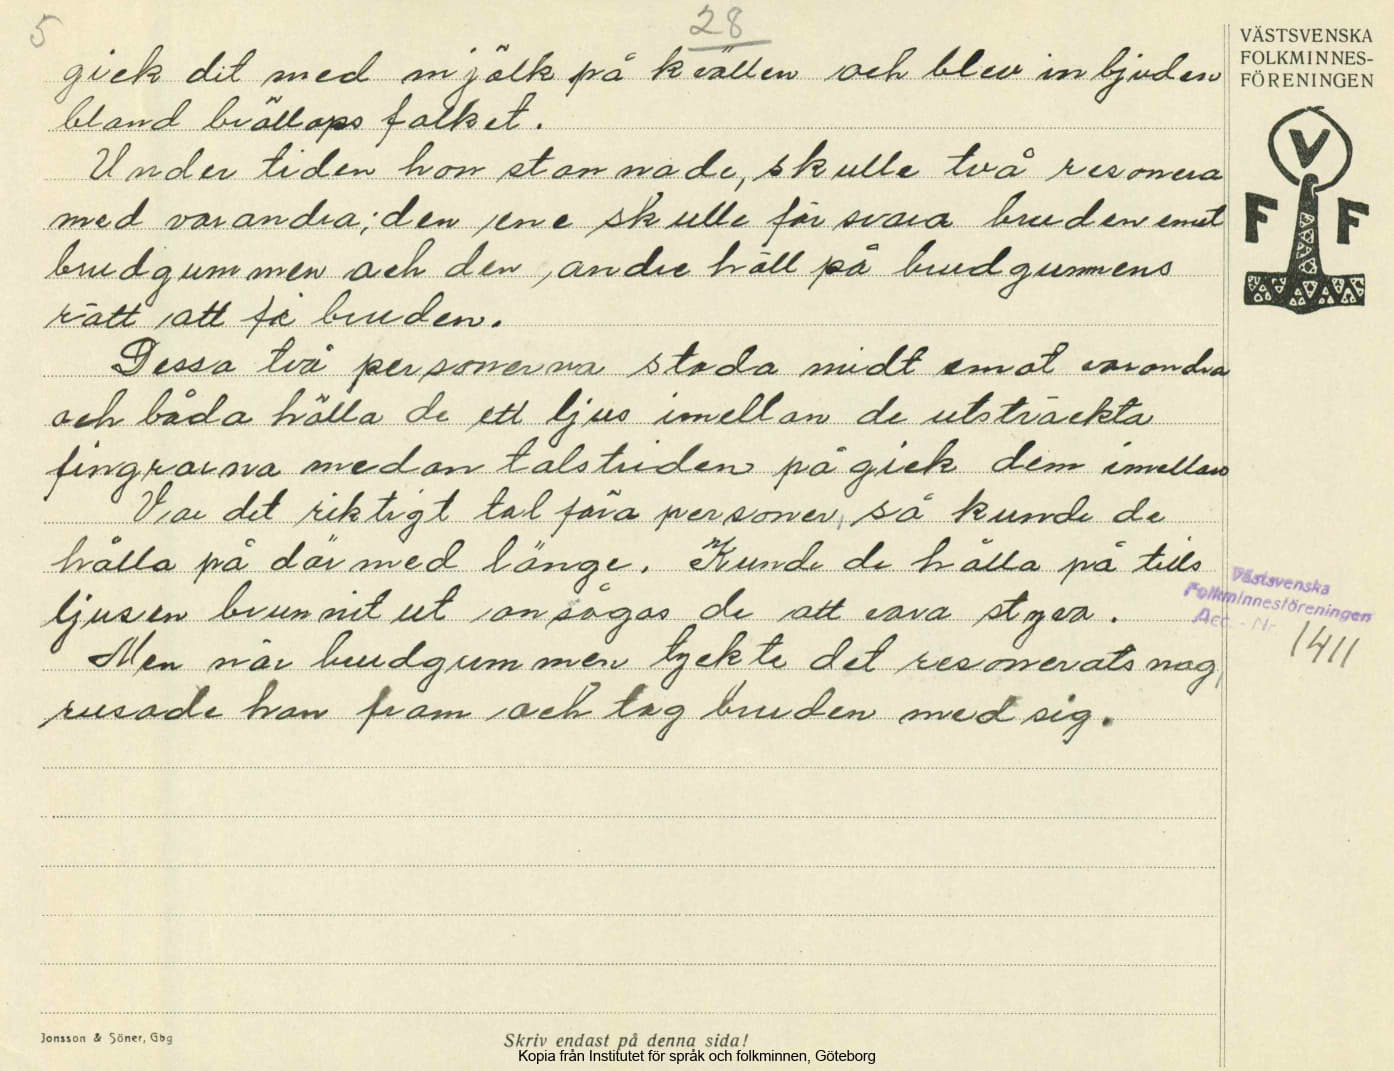 5
28
VÄSTSVENSKA
FOLKMINNES-
FÖRENINGEN
V
F F
gick dit med mjölk på kvällen och blev inbjuden
bland bröllopsfolket.
Under tiden hon stannade, skulle två resonera
med varandra; den ene skulle försvara bruden emot
brudgummen och den andre höll på brudgummens
rätt att få bruden.
Dessa två personerna stodo midt emot varandra
och båda hålla de ett ljus imellan de utsträckta
fingrarna medan talstriden pågick dem imellan
Var det riktigt talföra personer, så kunde de
hålla på därmed länge. Kunde de hålla på tills
ljusen brunnit ut ansågos de att vara styva.
Men när brudgummen tyckte det resonerats nog,
rusade han fram och tog bruden med sig.
Västsvenska
Folkminnesföreningen
Acc. - Nr 1411
Jonsson & Söner, Gbg
Skriv endast på denna sida!
Kopia från Institutet för språk och folkminnen, Göteborg